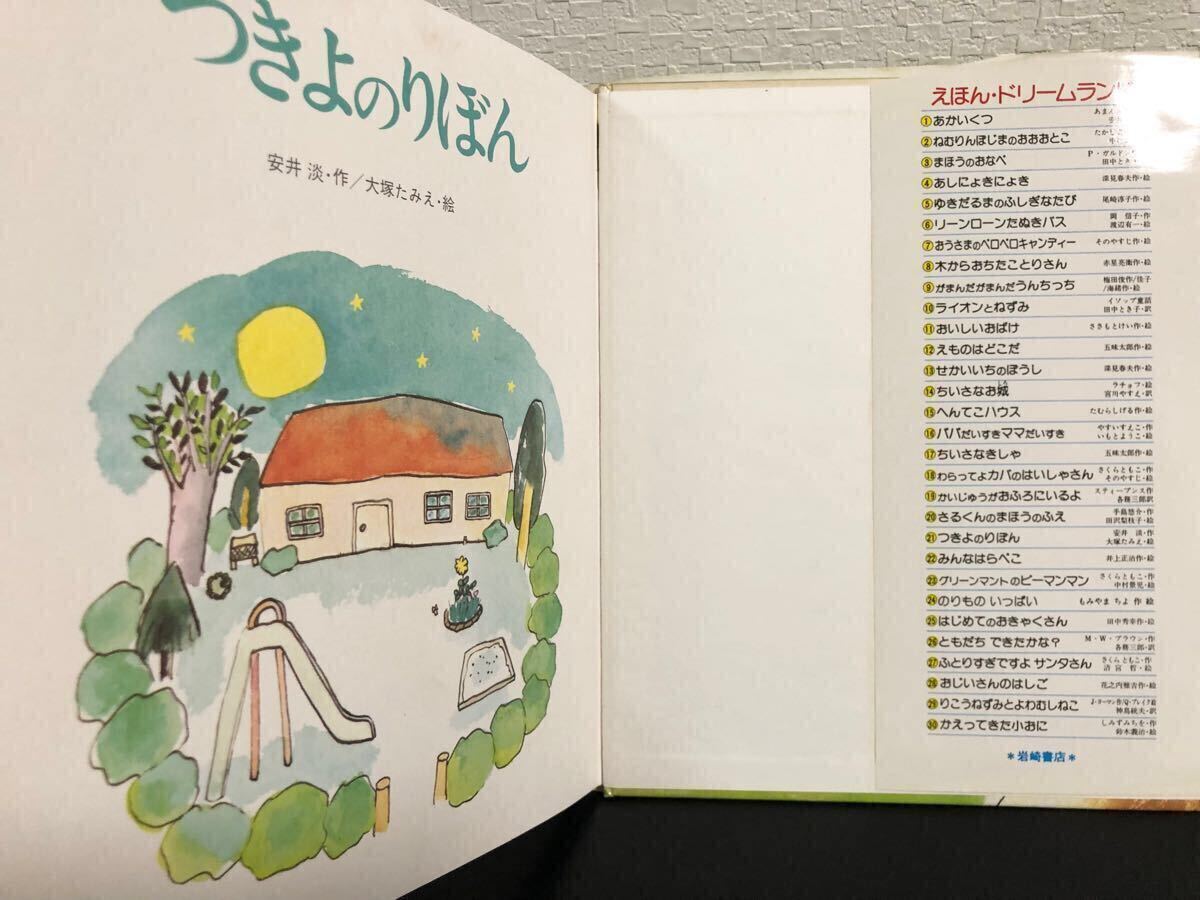 つきよのりぼん
安井 淡・作／大塚たみえ・絵
えほん・ドリームラン
①あかいくつ
②ねむりんぼじまのおおおとこ
③まほうのおなべ
P・ガルドン
田中とき
④あしにょきにょき 深見春夫作・絵
⑤ゆきだるまのふしぎなたび 尾崎淳子作・絵
⑥リーンローンたぬきバス
岡 信子・作
渡辺有一・絵
⑦おうさまのペロペロキャンディー そのやすじ作・絵
⑧木からおちたことりさん 赤星亮衛作・絵
⑨がまんだがまんだうんちっち
梅田俊作/佳子
/海緒作・絵
⑩ライオンとねずみ
イソップ童話
田中とき子・訳
⑪おいしいおばけ ささもとけい作・絵
⑫えものはどこだ 五味太郎作・絵
⑬せかいいちのぼうし 深見春夫作・絵
⑭ちいさなお城
しろ
ラチョフ・絵
宮川やすえ・訳
⑮へんてこハウス たむらしげる作・絵
⑯パパだいすきママだいすき
やすいすえこ・作
いもとようこ・絵
⑰ちいさなきしゃ 五味太郎作・絵
⑱わらってよカバのはいしゃさん
さくらともこ・作
そのやすじ・絵
⑲かいじゅうがおふろにいるよ
スティーブンス作
各務三郎訳
⑳さるくんのまほうのふえ
手島悠介・作
田沢梨枝子・絵
㉑つきよのりぼん
安井 淡・作
大塚たみえ・絵
㉒みんなはらぺこ 井上正治作・絵
㉓グリーンマントのピーマンマン
さくらともこ・作
中村景児・絵
㉔のりもの いっぱい もみやま ちよ 作 絵
㉕はじめてのおきゃくさん 田中秀幸作・絵
㉖ともだち できたかな？
M・W・ブラウン・作
各務三郎・訳
㉗ふとりすぎですよ サンタさん
さくら ともこ・作
清宮 哲・絵
㉘おじいさんのはしご 花之内雅吉作・絵
㉙りこうねずみとよわむしねこ
J・ヨーマン作/Q・ブレイク絵
神鳥統夫・訳
㉚かえってきた小おに
しみずみちを・作
鈴木義治・絵
＊岩崎書店＊